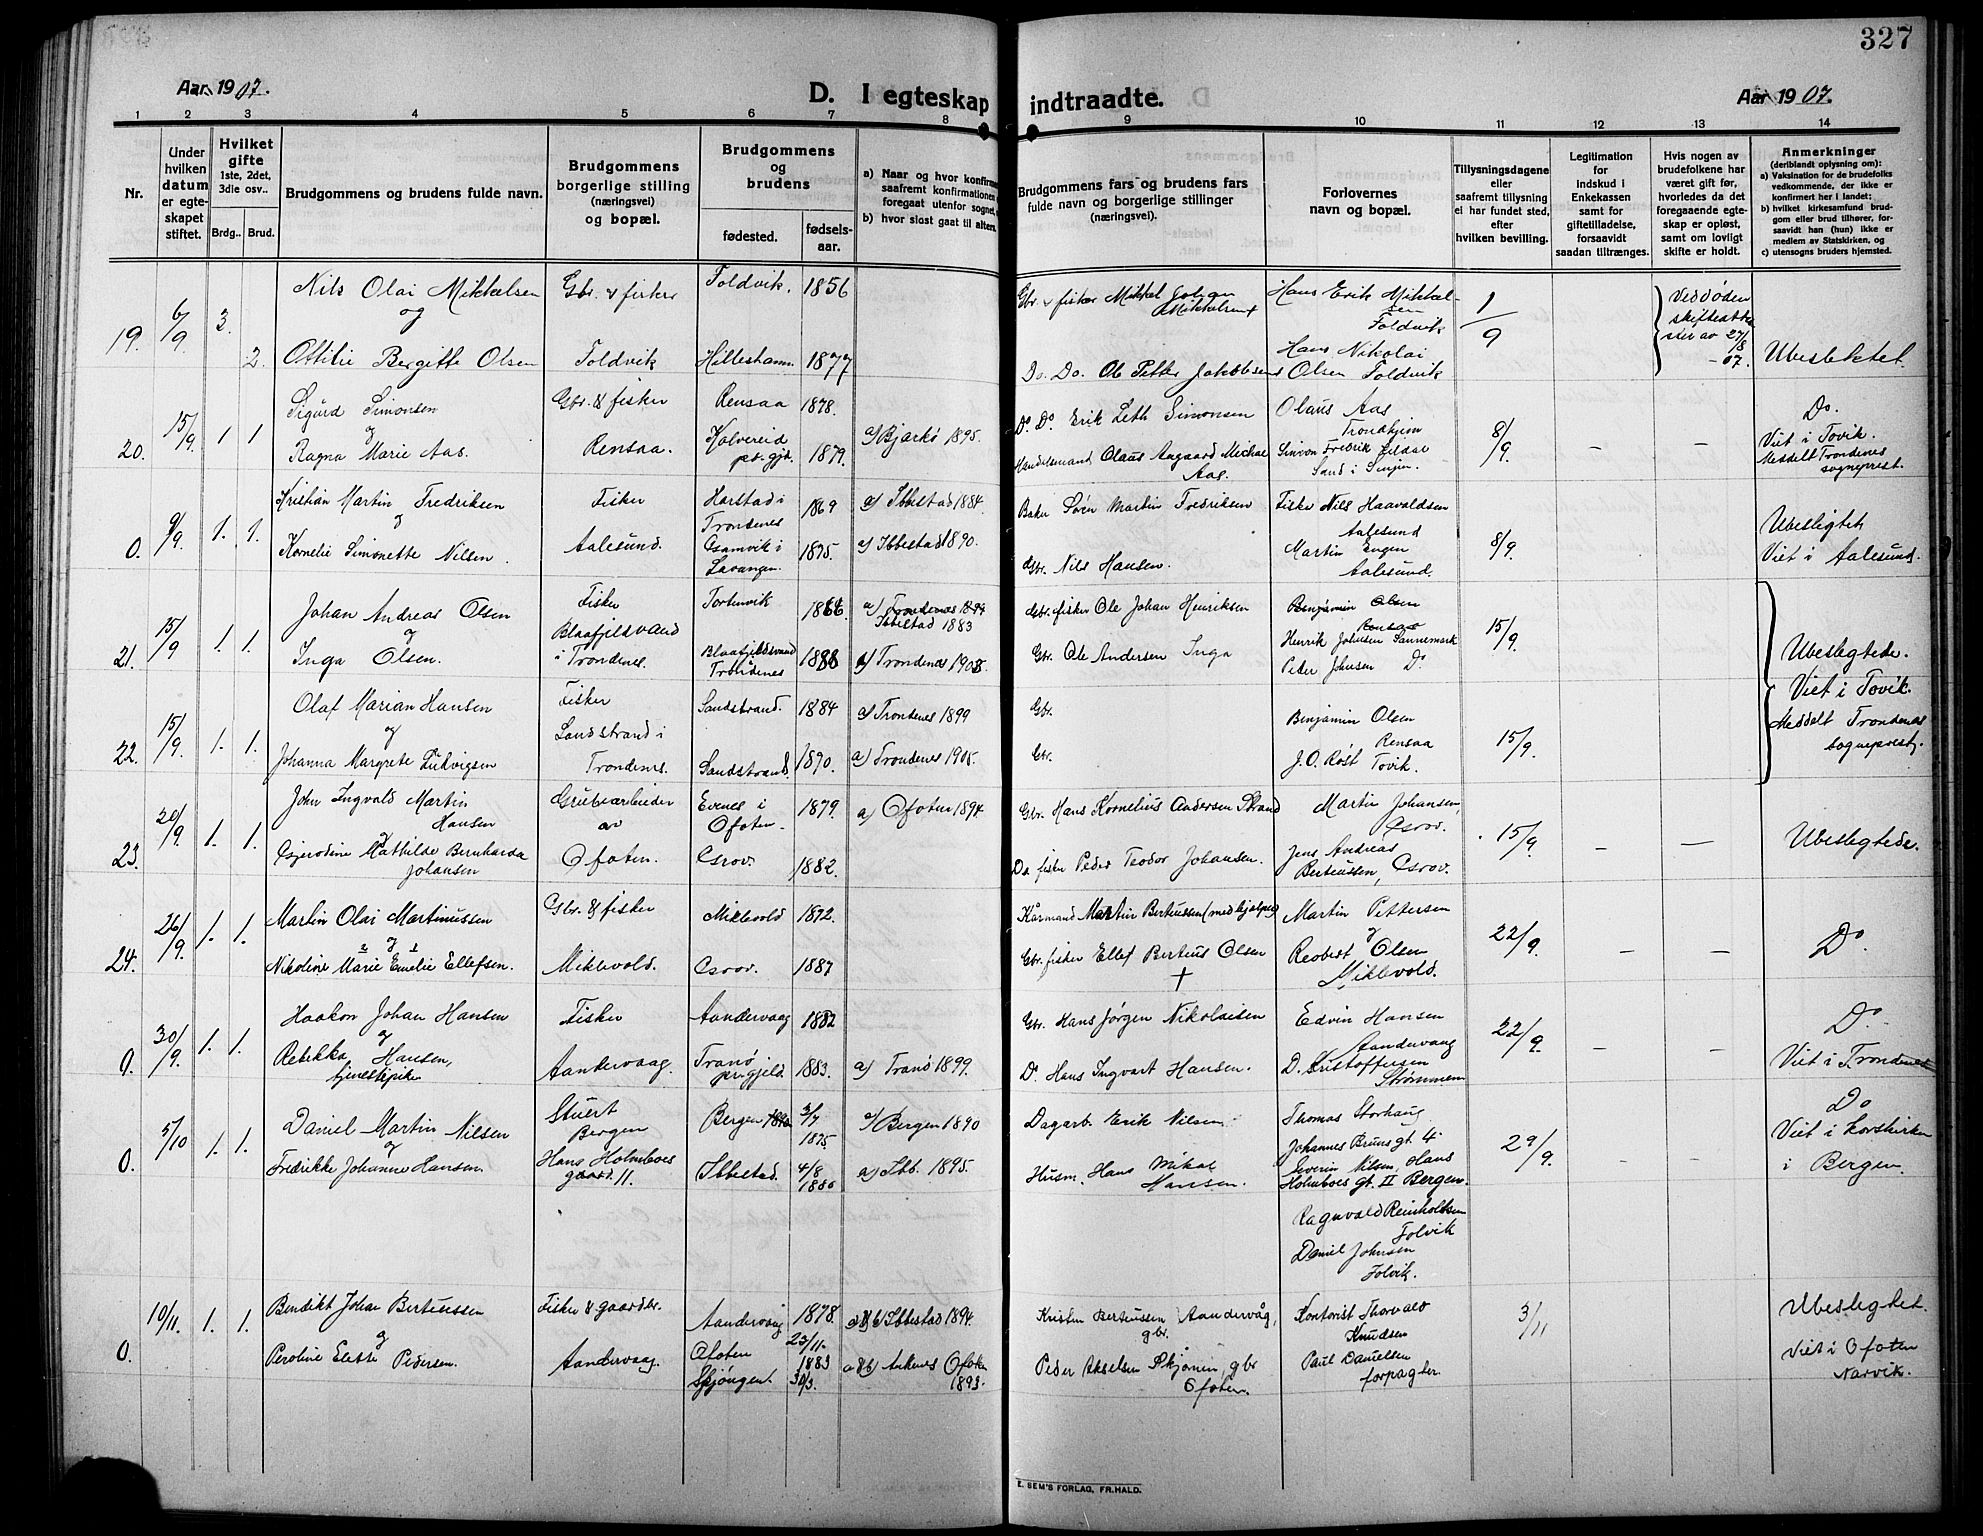 327
Aar 1907.
D. I egteskap indtraadte.
Aar 1907.
1 2 3 4 5 6 7 8 9 10 11 12 13 14
Nr.
Under hvilken datum er egteskapet stiftet.
Hvilket gifte 1ste, 2det, 3die osv..
Brdg..
Brud.
Brudgommens og brudens fulde navn.
Brudgommens borgerlige stilling (næringsvei) og bopæl.
Brudgommens og brudens
fødested.
fødsels-aar.
a) Naar og hvor konfirm
saafremt konfirmationen
foregaat utenfor sognet,
b) hvor sidst gaat til alters.
Brudgommens fars og brudens fars fulde navn og borgerlige stillinger (næringsvei).
Forlovernes navn og bopæl.
Tillysningsdagene eller saafremt tillysning ei har fundet sted, efter hvilken bevilling.
Legitimation for indskud i Enkekassen samt for giftetilladelse, forsaavidt saadan tiltrænges.
Hvis nogen av brudefolkene har været gift før, hvorledes da det foregaaende egteskap er opløst, samt om lovligt skifte er holdt.
Anmerkninger
(deriblandt oplysning om):
a) Vaksination for de brudefolks vedkommende, der ikke er konfirmert her i landet;
b) hvilket kirkesamfund brudgom eller brud tilhører, forsaavidt han (hun) ikke er medlem av Statskirken, og
c) utensogns bruders hjemsted.
19. 6/9 3. Nils Olai Mikkelsen Gbr. & fisker Foldvik. 1856 Gbr & fisker Mikkel Johan Mikkelsen † Hans Erik Mikkelsen Foldvik 1/9 Ved døden skifteattester av 27/8 -07.
og
2. Ottilie Bergitte Olsen Foldvik Hilleshamn. 1877 Do. Do. Ole Petter Jakobsen Hans Nikolai Olsen Foldvik Ubeslektet.
20. 15/9. 1 1 Sigurd Simonsen Gbr. & fisker Rensaa 1878. Do. Do Erik Leth Simonsen Olaus Aas Trondhjem 8/9. – – Do.
og
Ragna Marie Aas. Rensaa. Kolvereid pr.gjd. 1879. a) Bjarkö 1895. Handelsmand Olaus Aagaard Michael Aas. Simon Fredrik Lildal Sand i Senjen. Viet i Tovik. Meddelt Trondenes sogneprest.
0. 9/9. 1. 1. Kristian Martin Fredriksen Fisker Harstad i Trondenes 1869 a) Ibbestad 1884. Baker Sören Martin Fredriksen Fisker Nils Haavaldsen Aalesund 8/9. Ubeslegtet
og
Kornelie Simonette Nilsen. Aalesund. Gamvik i Lavangen. 1875. a) Ibbestad 1890. Gbr. Nils Hansen. Martin Engen Aalesund. Viet i Aalesund.
21. 15/9 1. 1. Johan Andreas Olsen Fisker Tortenvik 1868 a) Trondenes 1894 Ibbestad 1883 Gbr. fisker Ole Johan Henriksen Benjamin Olsen Rensaa 15/9. Ubeslegtede.
og
Inga Olsen. Blaafjeldvand i Trondenes. Blaafjeldsvand Trondenes 1888 a) Trondenes 1905. Gbr. Ole Andersen Inga Henrik Johnsen Sannemark Peder Johnsen Do Viet i Tovik.
22. 15/9. 1. 1. Olaf Marian Hansen Fisker Sandstrand. 1884 a) Trondenes 1899 Gbr. Benjamin Olsen Rensaa 15/9. Meddelt Trondenes sogneprest.
og
Johanna Margrete Ludvigsen Sandstrand i Trondenes. Sandstrand. 1890. a) Trondenes 1905. Gbr. J.O. Röst Tovik.
23. 20/9. 1. 1. John Ingvald Martin Hansen Grubearbeider av Evenes i Ofoten. 1879. a) Ofoten 1894. Gbr. Hans Kornelius Andersen Strand Martin Johansen, Grov. 15/9. – – Ubeslegtede.
og
Gjerodine Mathilde Bernharda Johansen Ofoten. Grov. 1882. Do fisker Peder Teodor Johansen. Jens Andreas Berteussen, Grov.
24. 26/9. 1. 1. Martin Olai Martinussen Gbr. & fisker Miklevold 1872. Kårmand Martin Berteussen (medhjelper) Martin Pettersen 22/9. – – Do
og og
Nikoline Marie Emelie Ellefsen. Miklevold. Grov. 1887 Gbr fisker Ellef Berteus Olsen † Reobert Olsen Miklevold.
0. 30/9. 1. 1. Haakon Johan Hansen Fisker Aandervaag 1882 Gbr. Hans Jörgen Nikolaisen Edvin Hansen Aandervaag 22/9. – – Do.
og
Rebekka Hansen, tjenestepike Aandervaag. Tranö pr.gjeld. 1883. a) Tranö 1899. Do Hans Ingvart Hansen. D. Kristoffersen Strömmen Viet i Trondenes
0. 5/10 1. 1. Daniel Martin Nilsen Stuert Bergen Bergen 3/7 1875. a) Bergen 1890 Dagarb. Erik Nilsen Thomas Storhaug Johannes Bruns gt. 4 29/9. – – Do
og
Fredrikke Johanne Hansen. Hans Holmboes gaard 11. Ibbestad. 4/8 1880 a) Ibb. 1895. Husm. Hans Mikal Hansen. Severin Nilsen, Hans Holmboes gt. II Bergen. Viet i Korskirken i Bergen.
Ragnvald Reinholtsen Folvik
Daniel Johnsen Folvik.
0. 10/11. 1. 1. Benedikt Johan Berteussen Fisker & gaardbr. Aandervaag 1878. 23/11. a & b) Ibbestad 1894. Kristen Berteussen Aandervåg, gbr. Kontorist Thorvald Knudsen 3/11 Ubeslegtet.
og
Peroline Elette Pedersen. Aandervaag. Ofoten Skjöngen 1883 30/3. a & b) Ankenes Ofoten 1893. Peder Akselsen Skjönin, gbr Ofoten. Paul Danielsen forpagter. Viet i Ofoten Narvik.
E. SEM'S FORLAG, FR.HALD.